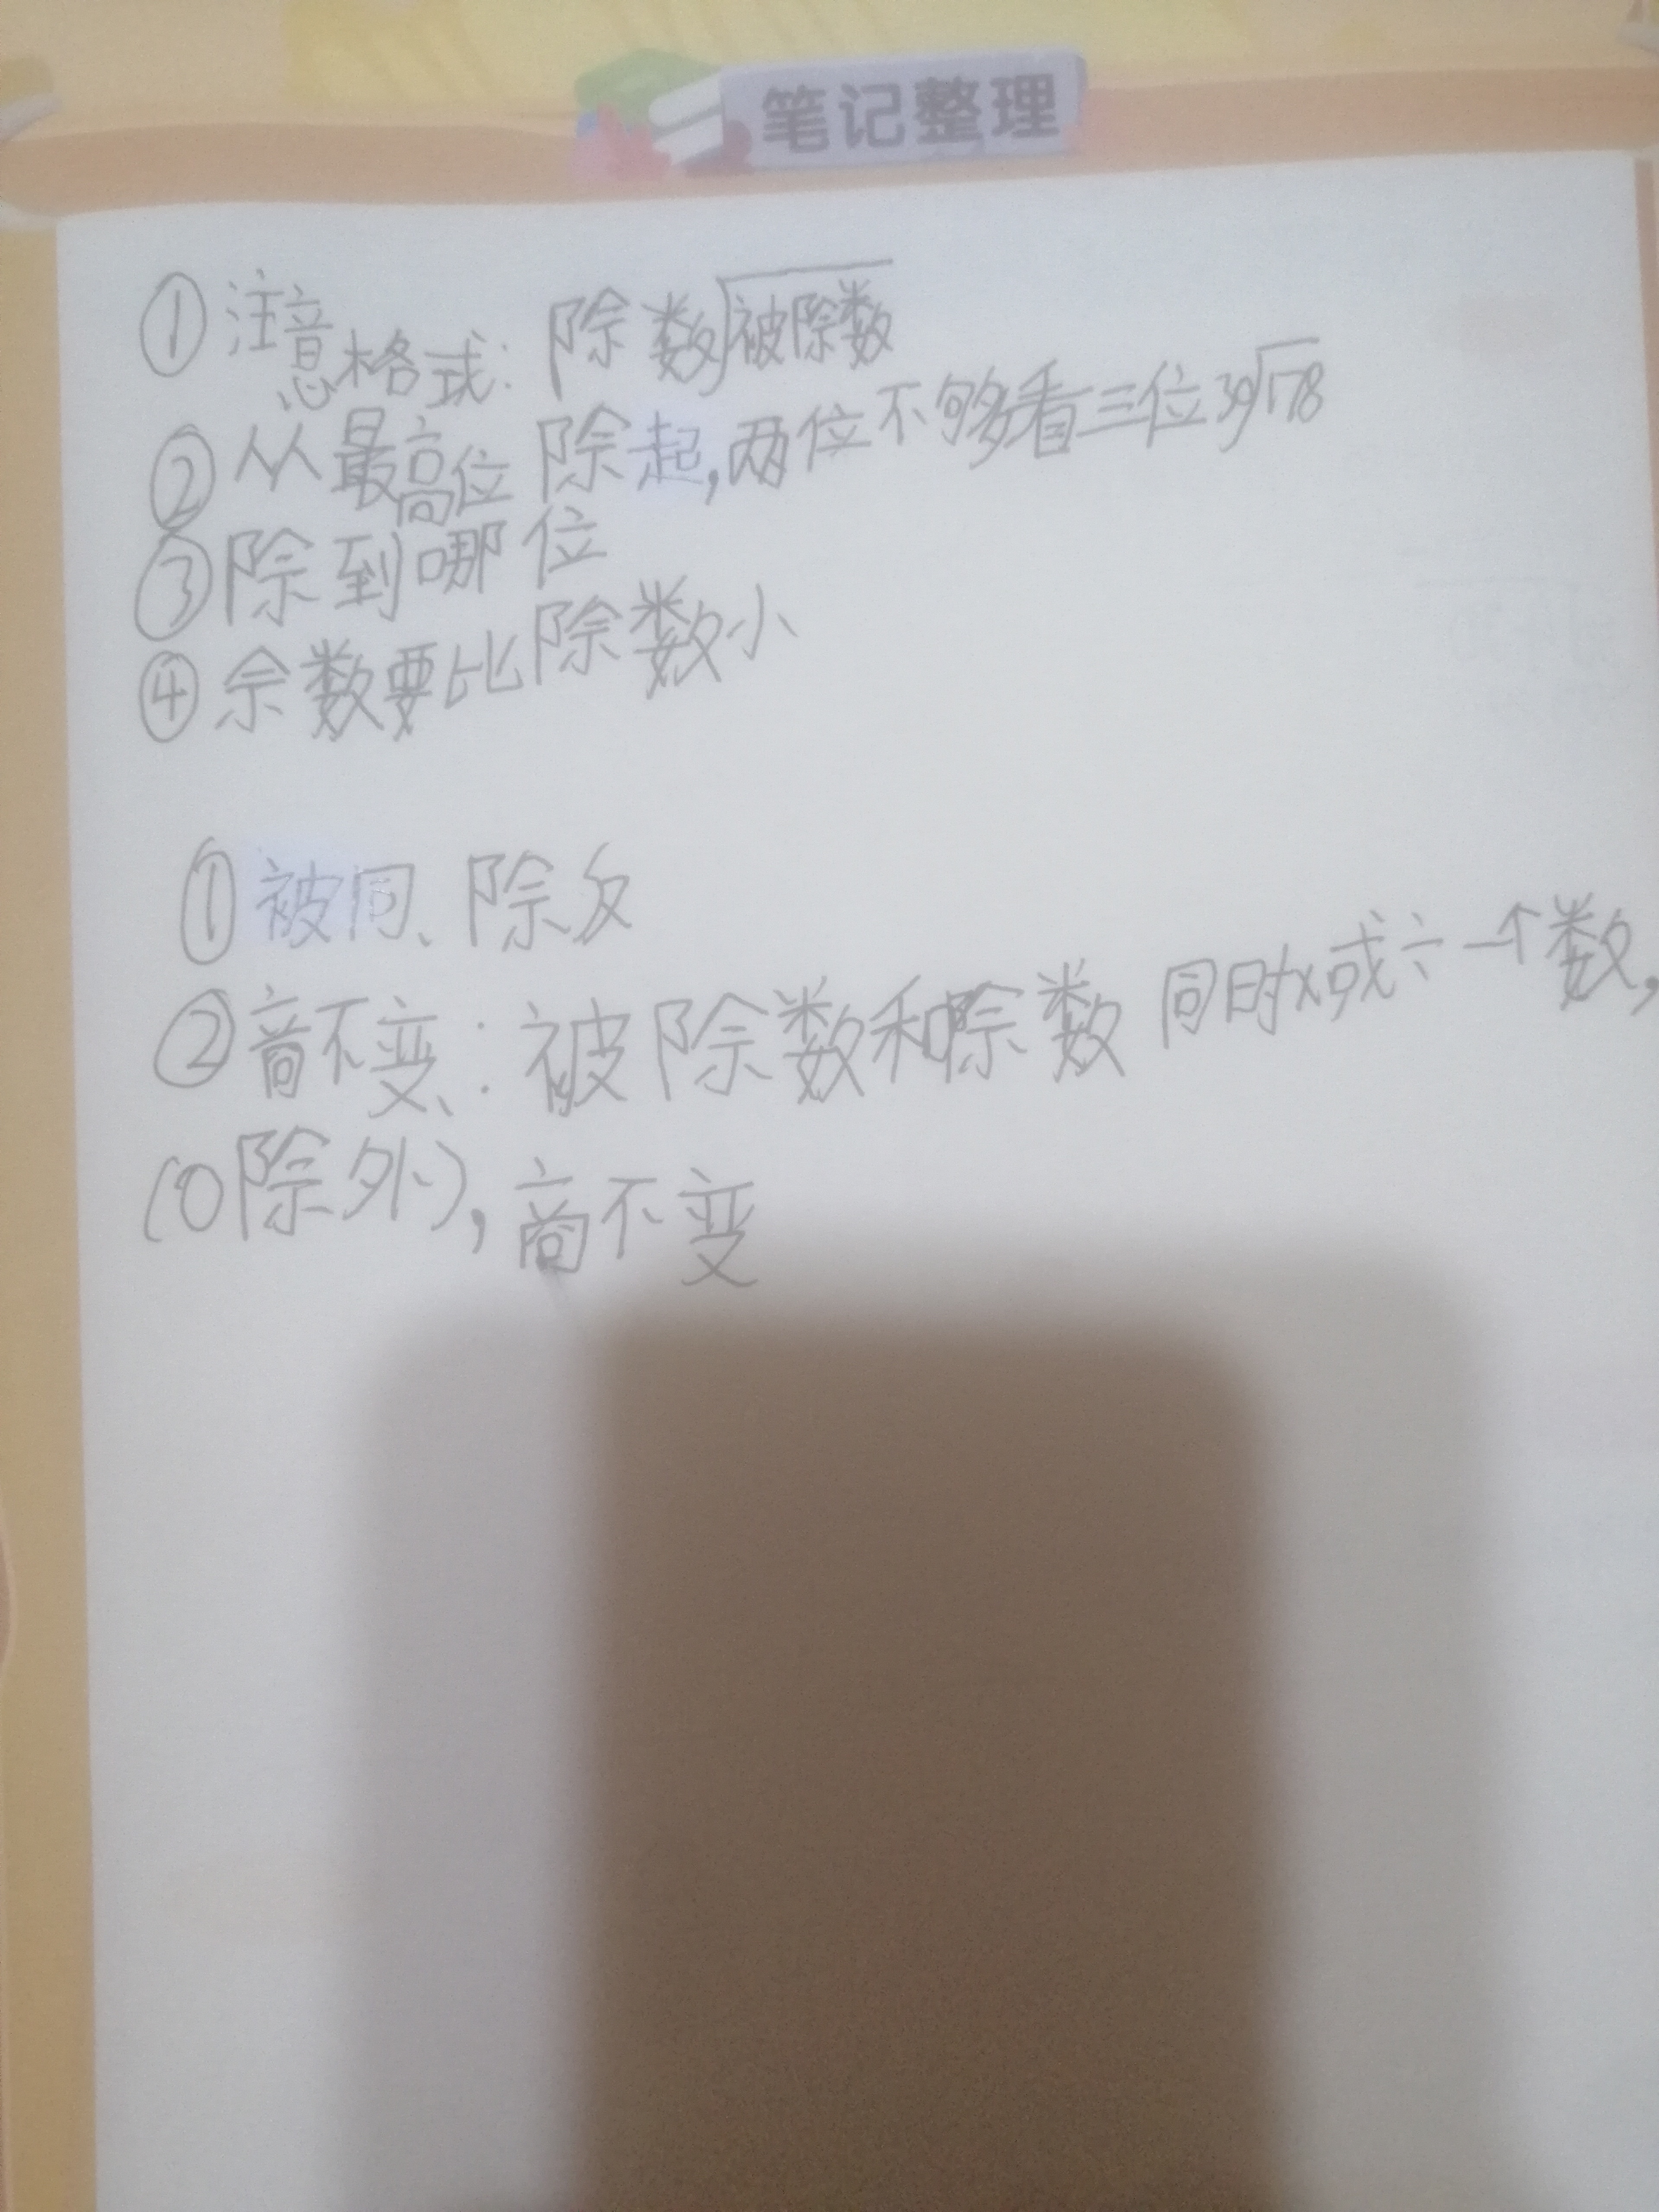 笔记整理
①注意格式：除数⟌被除数
②从最高位除起，两位不够看三位39⟌178
③除到哪位
④余数要比除数小
①被同、除反
②商不变：被除数和除数同时×或÷一个数，
(0除外)，商不变